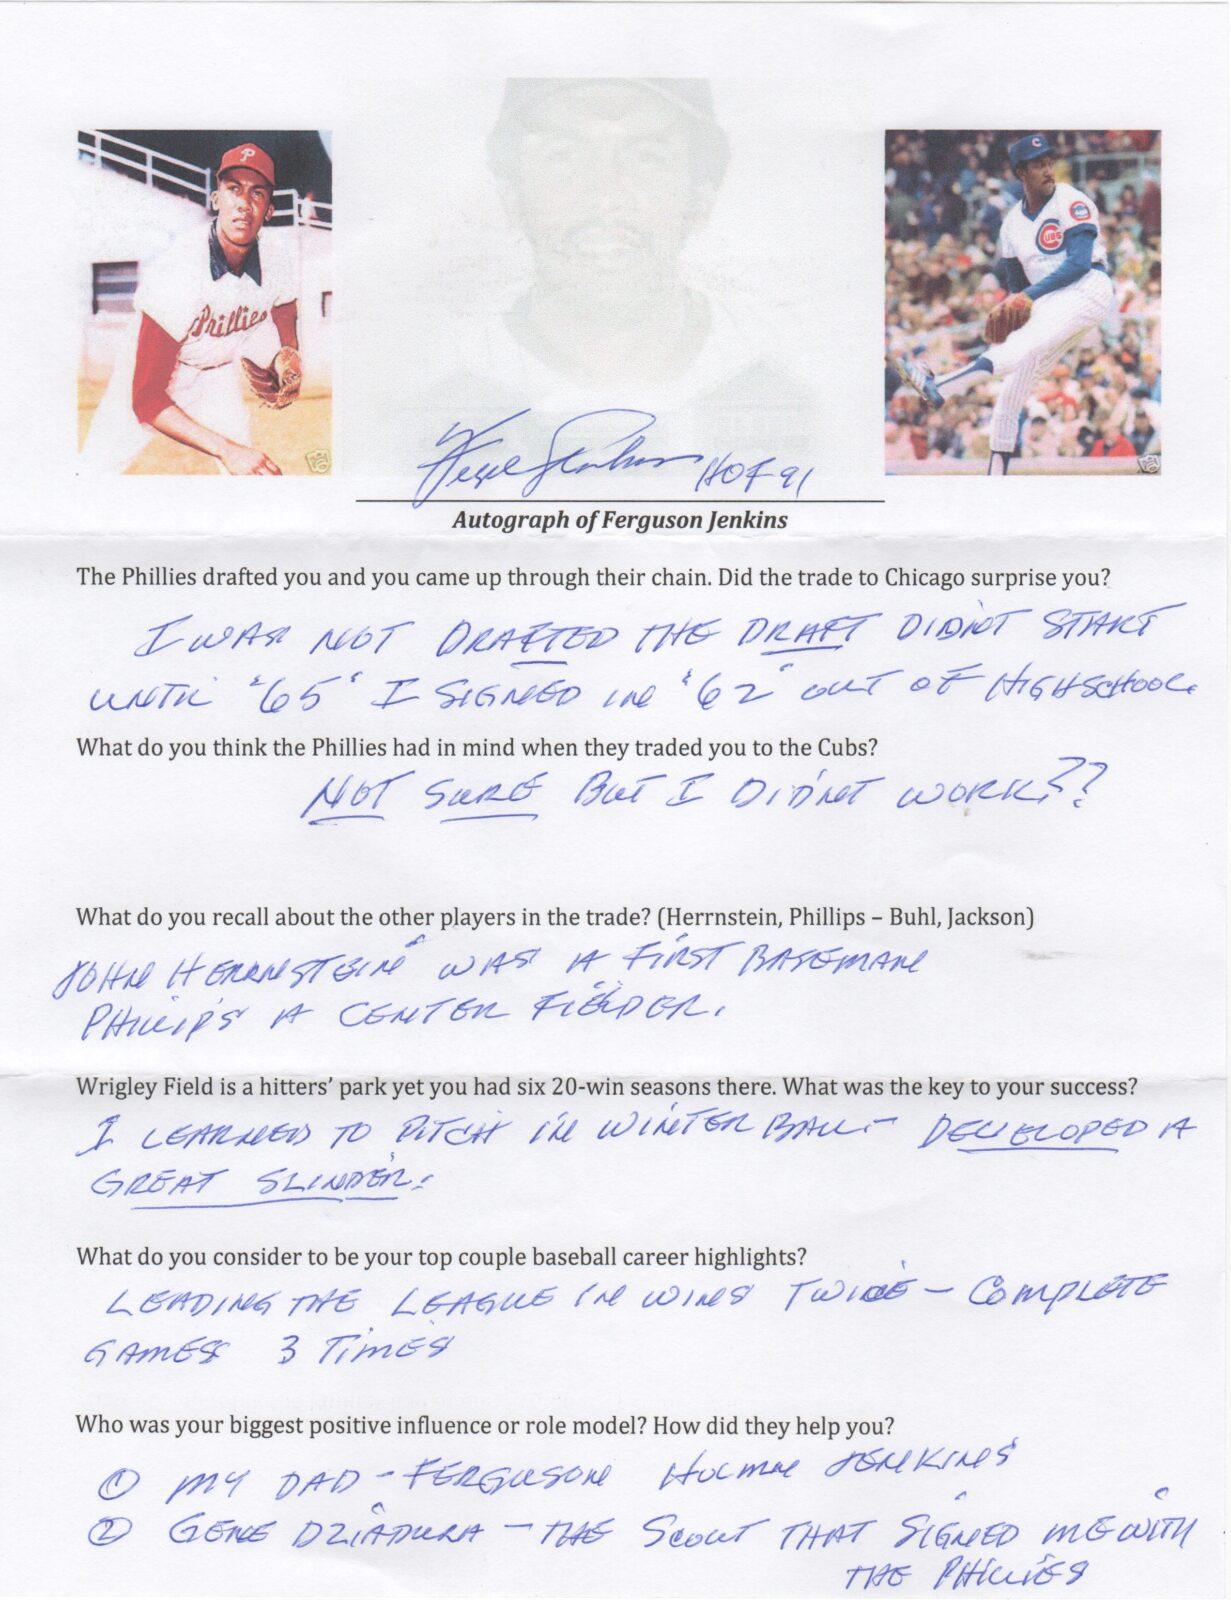 P
Phillies
C
CUBS
Fergie Jenkins HOF 91
Autograph of Ferguson Jenkins
The Phillies drafted you and you came up through their chain. Did the trade to Chicago surprise you?
I WAS NOT DRAFTED THE DRAFT DIDN'T START
UNTIL "65" I SIGNED IN "62" OUT OF HIGHSCHOOL.
What do you think the Phillies had in mind when they traded you to the Cubs?
NOT SURE BUT I DIDN'T WORK??
What do you recall about the other players in the trade? (Herrnstein, Phillips – Buhl, Jackson)
JOHN HERRNSTEIN WAS A FIRST BASEMAN
PHILLIPS A CENTER FIELDER.
Wrigley Field is a hitters' park yet you had six 20-win seasons there. What was the key to your success?
I LEARNED TO PITCH IN WINTER BALL - DEVELOPED A
GREAT SLINDER.
What do you consider to be your top couple baseball career highlights?
LEADING THE LEAGUE IN WINS TWICE - COMPLETE
GAMES 3 TIMES
Who was your biggest positive influence or role model? How did they help you?
① MY DAD - FERGUSON HOLMAN JENKINS
② GENE DZIADURA - THE SCOUT THAT SIGNED ME WITH
THE PHILLIES